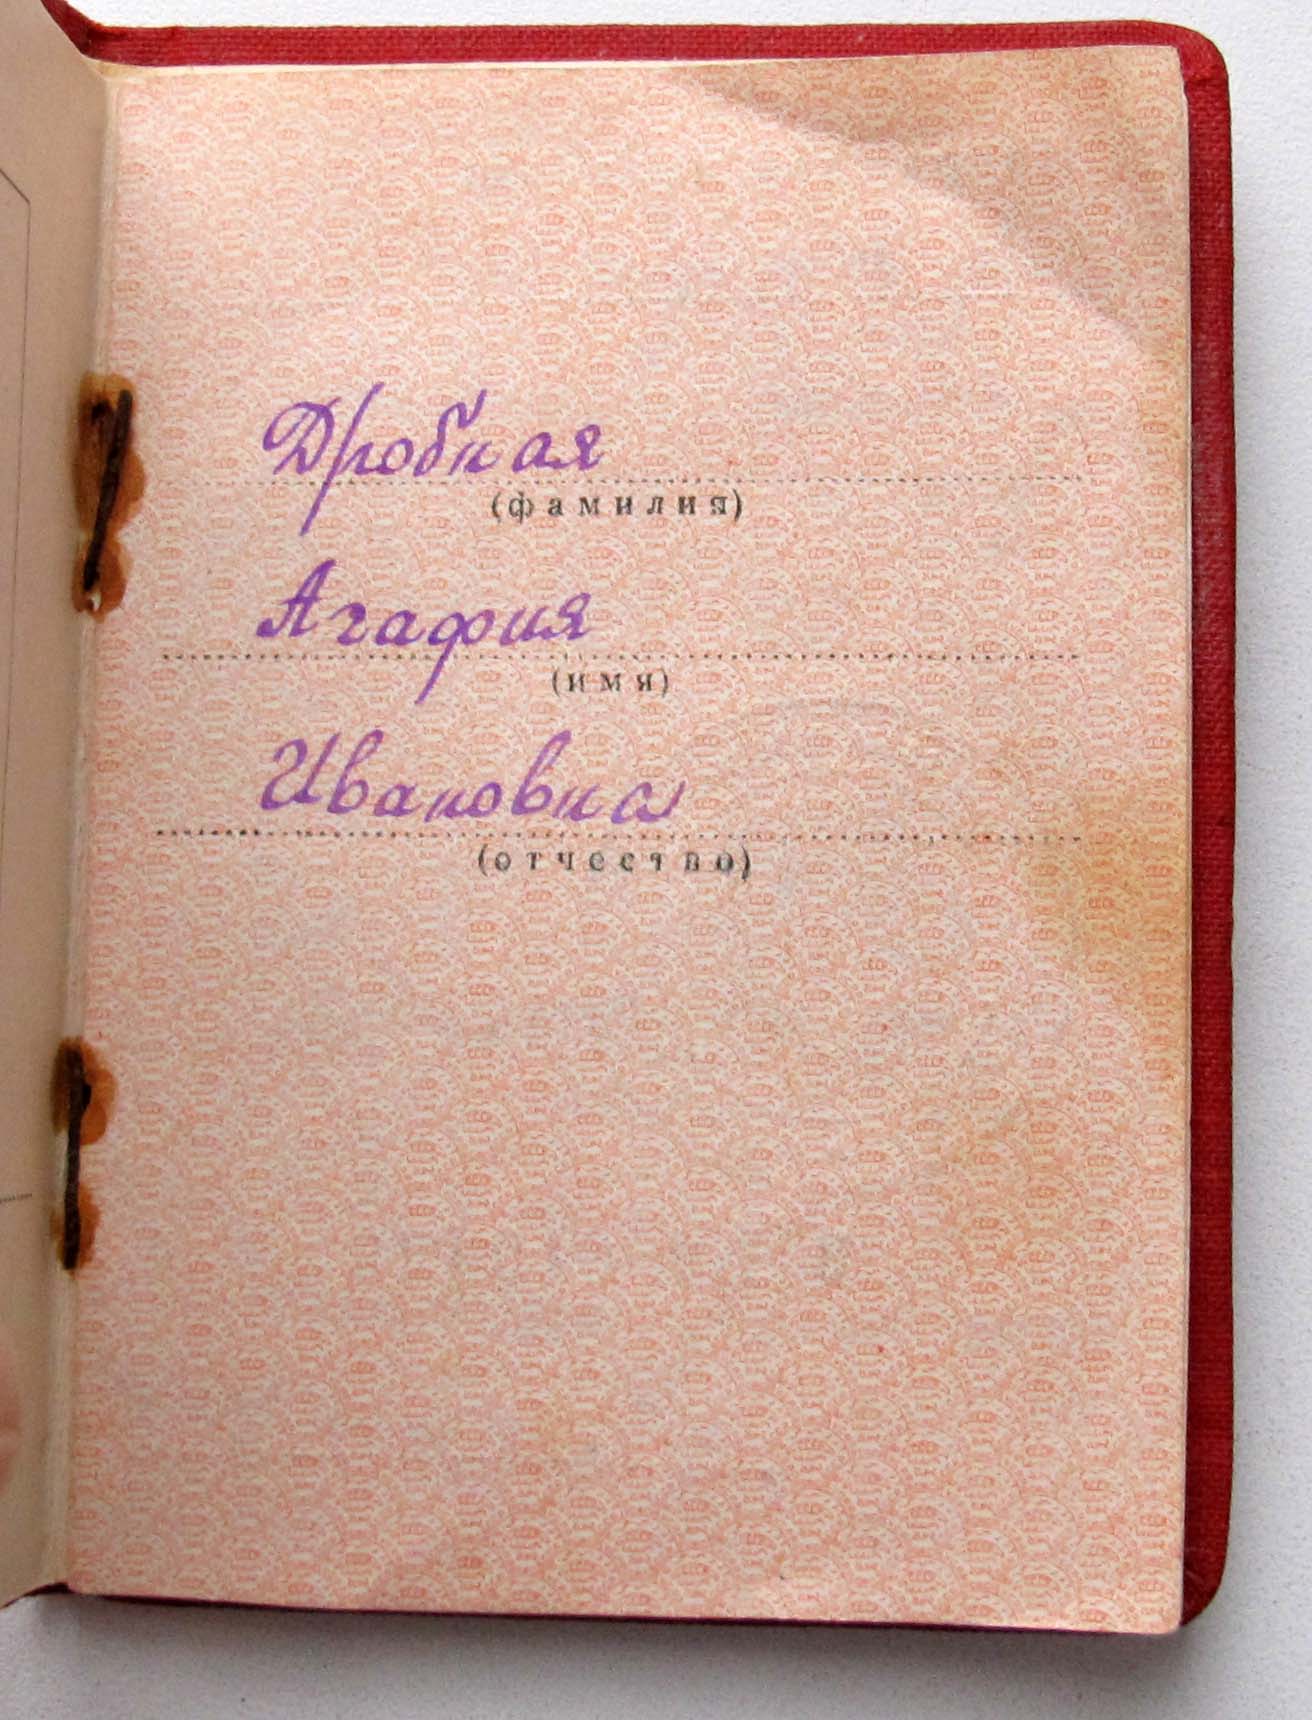 Дробная
(фамилия)
Агафия
(имя)
Ивановна
(отчество)